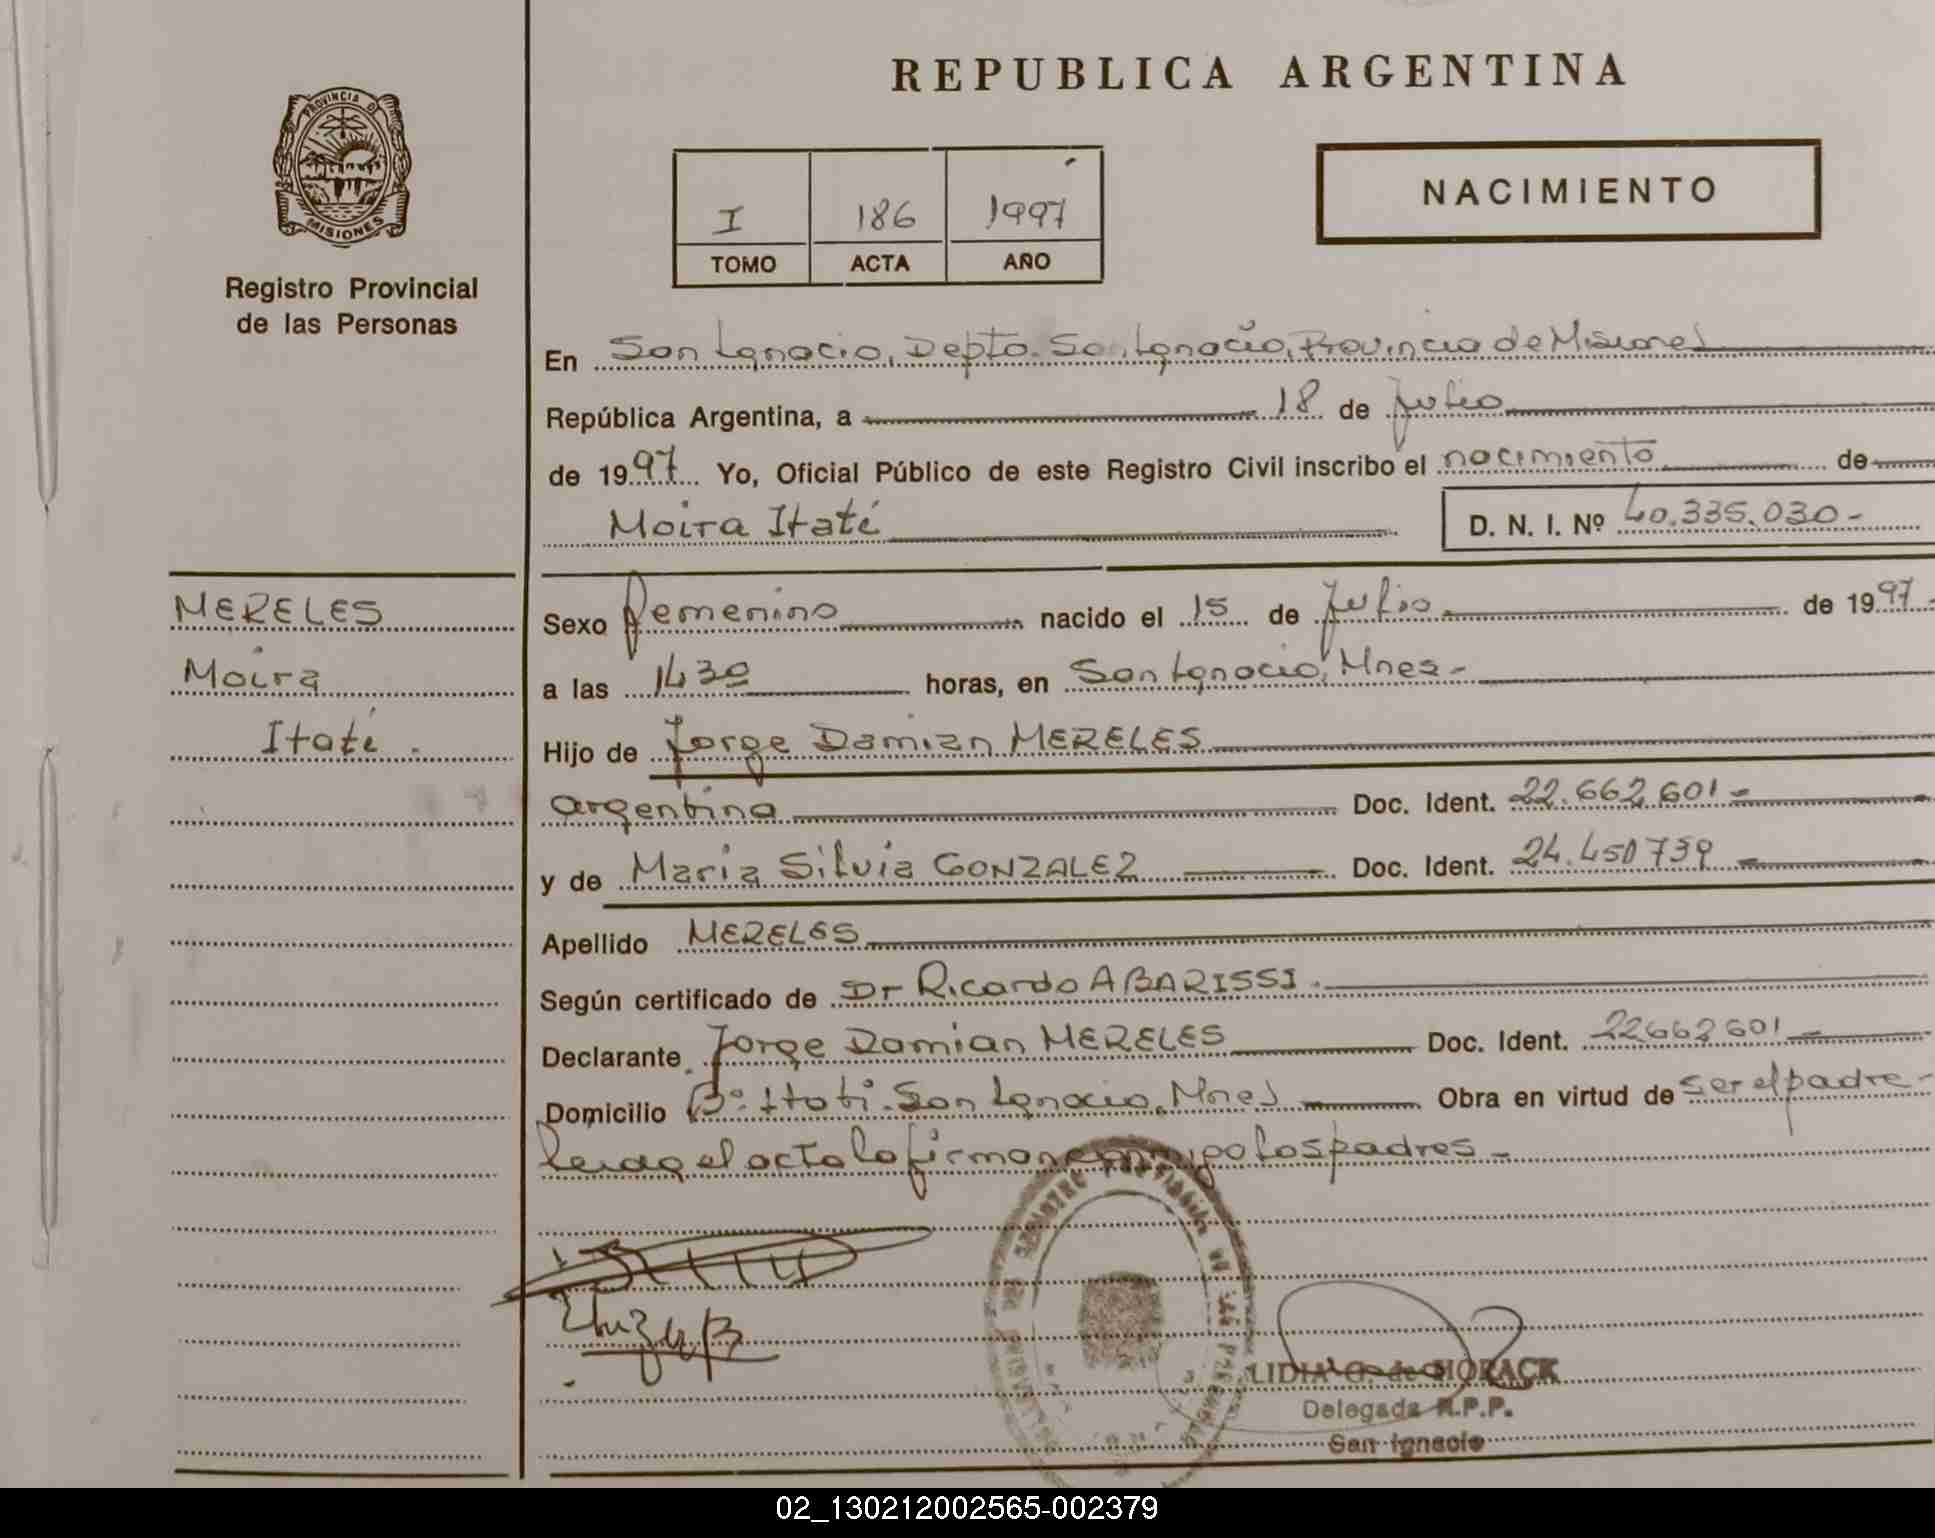 REPUBLICA ARGENTINA
PROVINCIA D
MISIONES
Registro Provincial
de las Personas
I 186 1997
TOMO ACTA AÑO
NACIMIENTO
En San Ignacio, Depto. San Ignacio, Provincia de Misiones
República Argentina, a 18 de Julio
de 1997 Yo, Oficial Público de este Registro Civil inscribo el nacimiento de
Moira Itatí
D. N. I. Nº 40.335.030-
MERELES
Moira
Itatí.
Sexo femenino nacido el 15 de Julio de 1997-
a las 1430 horas, en San Ignacio, Mnes-
Hijo de Jorge Damian MERELES
argentina Doc. Ident. 22.662.601-
y de Maria Silvia GONZALEZ Doc. Ident. 24.450739
Apellido MERELES
Según certificado de Dr Ricardo ABARISSI.
Declarante Jorge Damian MERELES Doc. Ident. 22662601-
Domicilio Bº Itatí. San Ignacio, Mnes Obra en virtud de ser el padre-
el acta la firman conmigo los padres-
LIDIA G. de HORACK
Delegada R.P.P.
San Ignacio
02_130212002565-002379